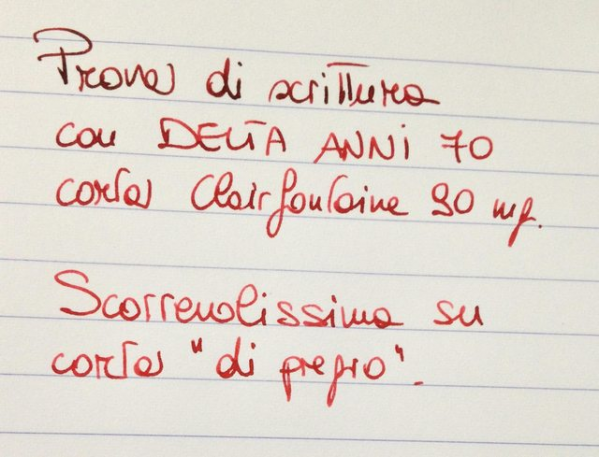 Prova di scrittura
con DELTA ANNI 70
carta Clairfontaine 90 mg.
Scorrevolissima su
carta "di pregio".